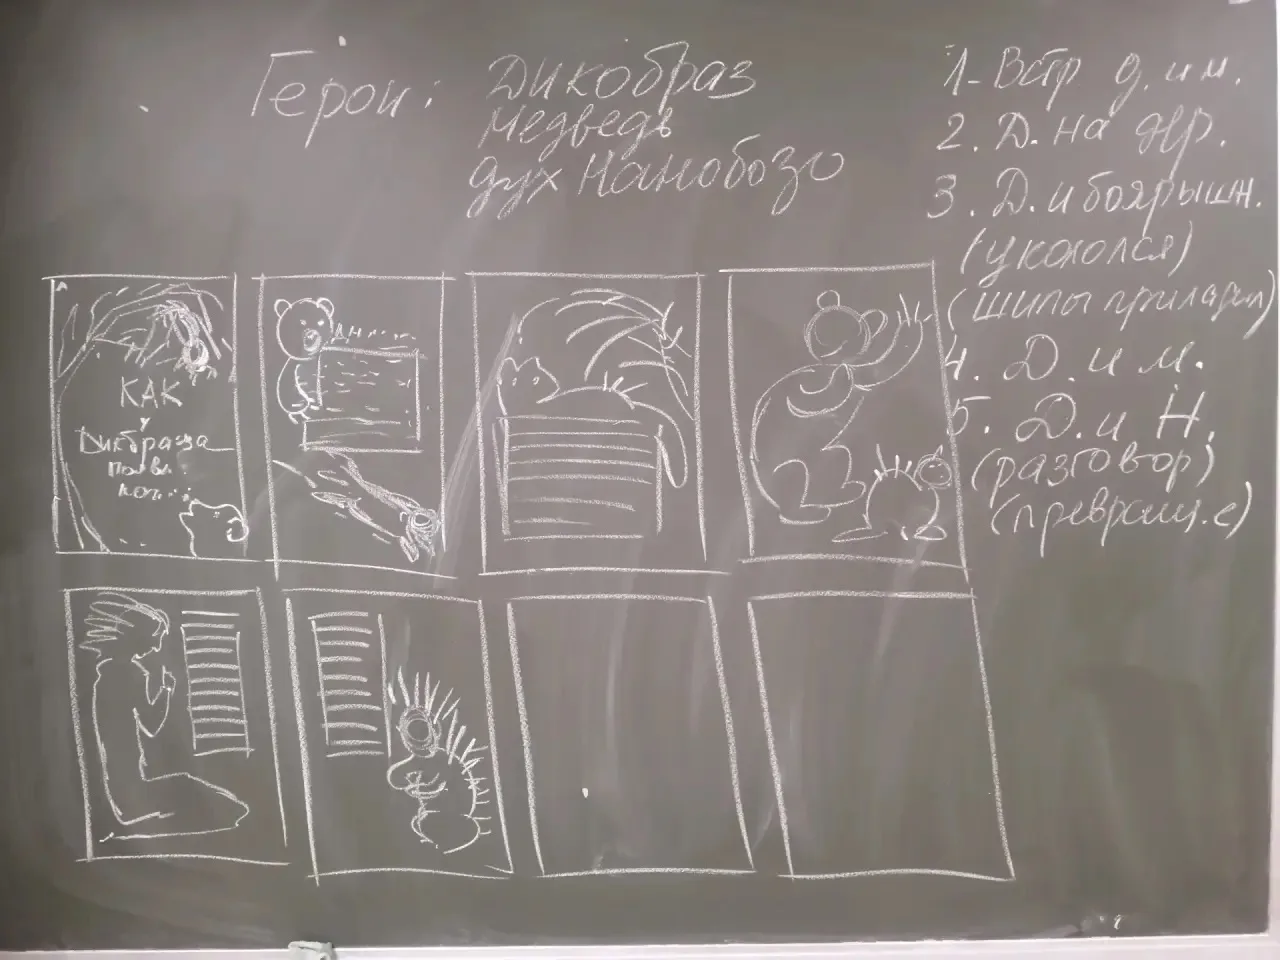 Герои: Дикобраз
Медведь
дух Нанобозо
1- Встр д. и м.
2. Д. на дер.
3. Д. и боярышн.
(укололся)
(шипы приладил)
4. Д. и м.
5. Д. и Н.
(разговор)
(превращ. е)
КАК
у
Дикбраза